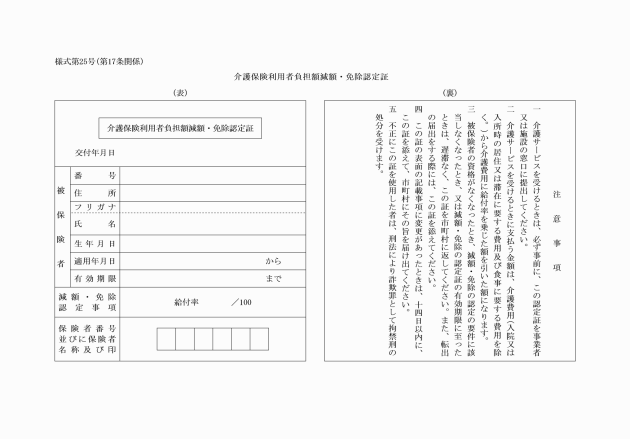 様式第25号(第17条関係)
介護保険利用者負担額減額・免除認定証
(表)
介護保険利用者負担額減額・免除認定証
交付年月日
被保険者
番号
住所
フリガナ
氏名
生年月日
適用年月日 から
有効期限 まで
減額・免除
認定事項
給付率 /100
保険者番号
並びに保険者
名称及び印
(裏)
注意事項
一 介護サービスを受けるときは、必ず事前に、この認定証を事業者
又は施設の窓口に提出してください。
二 介護サービスを受けるときに支払う金額は、介護費用(入院又は
入所時の居住又は滞在に要する費用及び食事に要する費用を除
く。)から介護費用に給付率を乗じた額を引いた額になります。
三 被保険者の資格がなくなったとき、減額・免除の認定の要件に該
当しなくなったとき、又は減額・免除の認定証の有効期限に至った
ときは、遅滞なく、この証を市町村に返してください。また、転出
の届出をする際には、この証を添えてください。
四 この証の表面の記載事項に変更があったときは、十四日以内に、
この証を添えて、市町村にその旨を届け出てください。
五 不正にこの証を使用した者は、刑法により詐欺罪として拘禁刑の
処分を受けます。